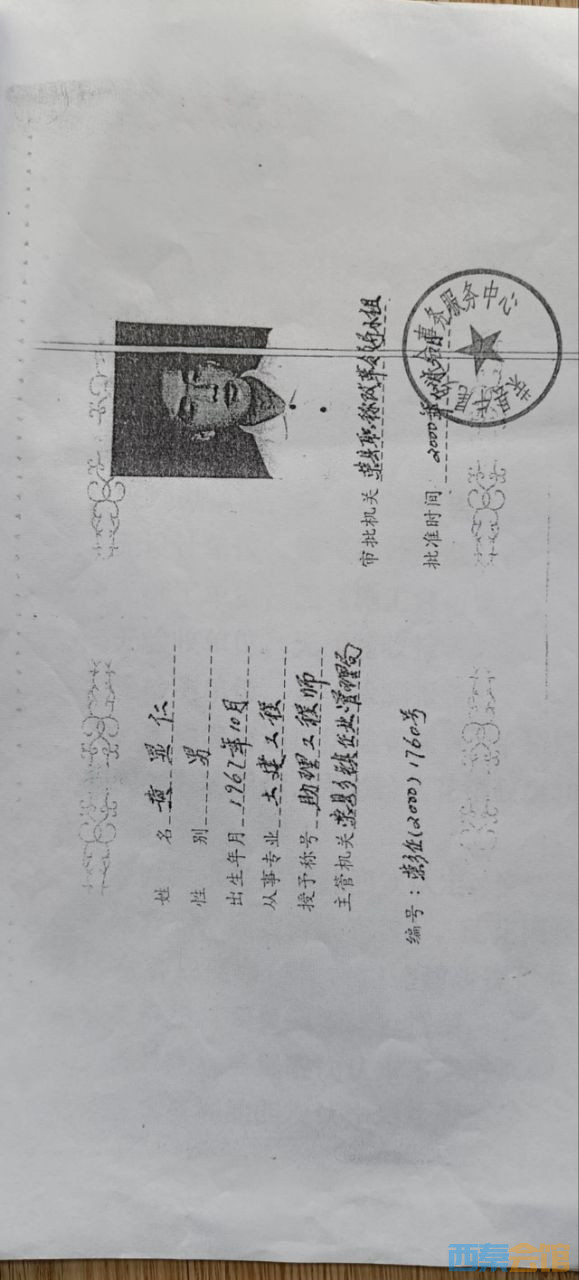 姓 名 黄显仁
性 别 男
出生年月 1967年10月
从事专业 土建工程
授予称号 助理工程师
主管机关 荣县乡镇企业管理局
编号：荣乡企(2000)1760号
审批机关 荣县职称改革领导小组
批准时间 2000年
荣县
事务服务中心
西秦会馆